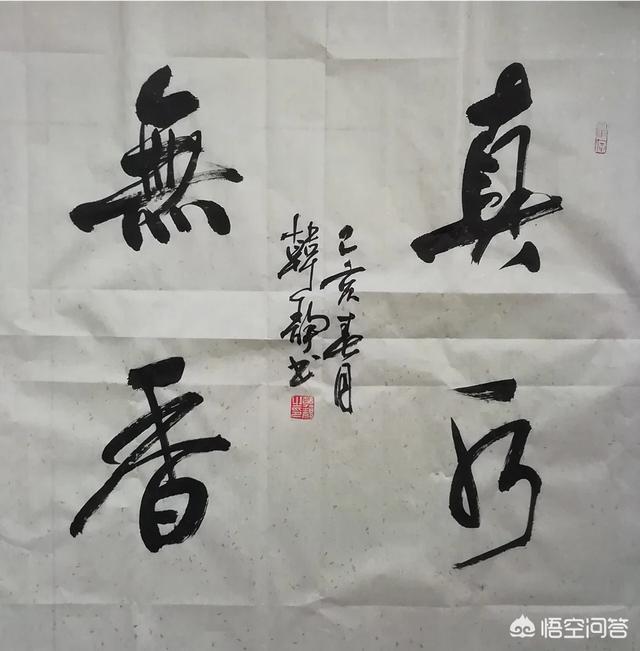 真水
無香
己亥春月
韓静书
悟空问答